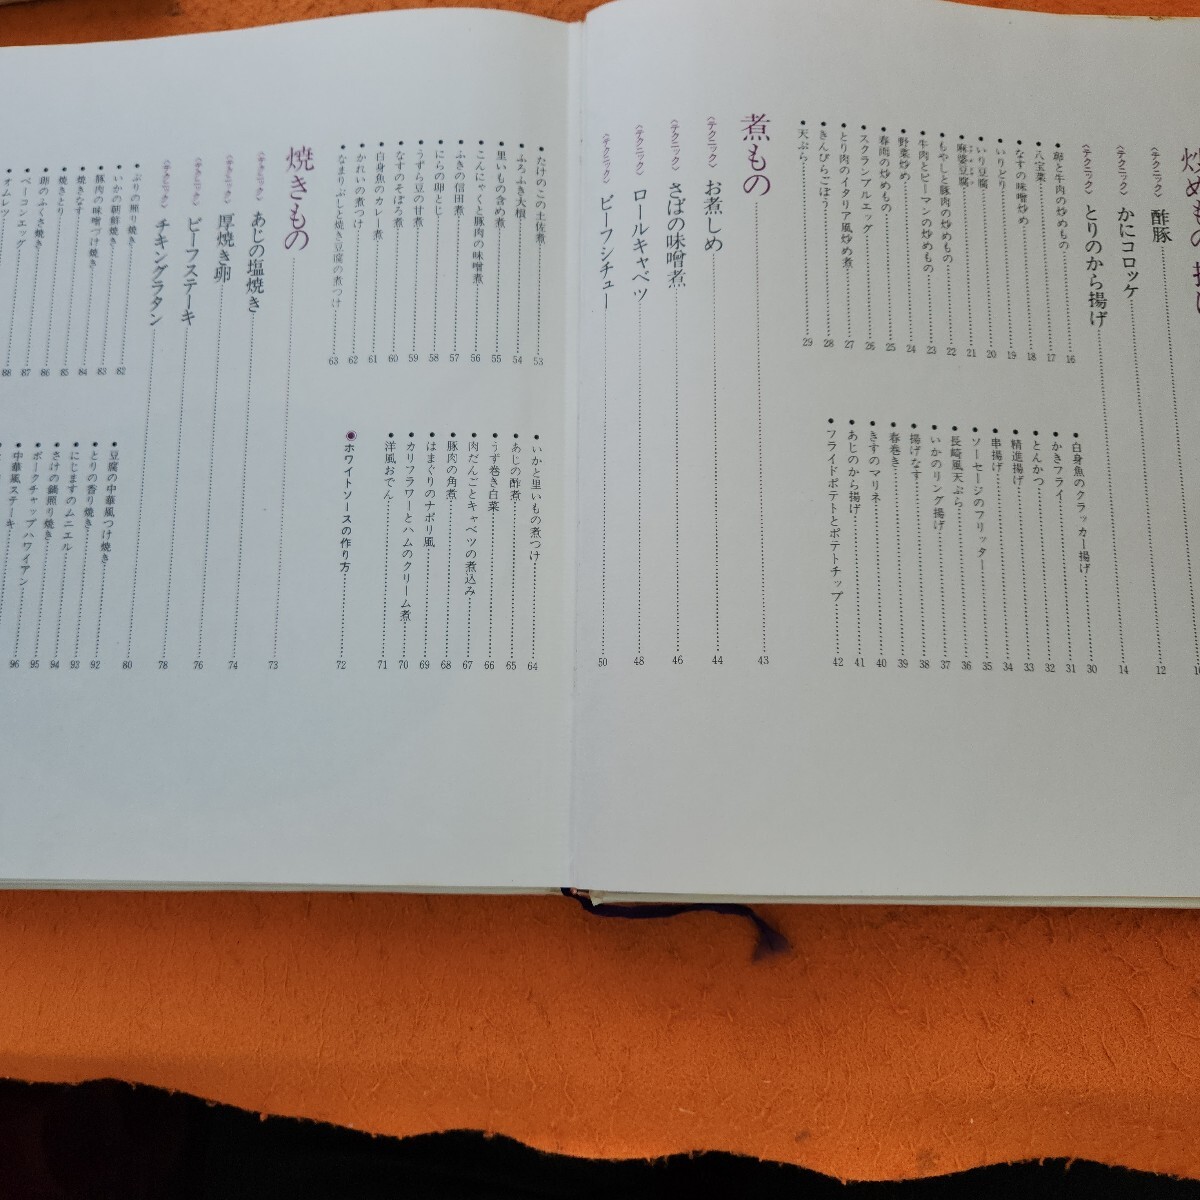 炒めもの・揚げ
〈テクニック〉 酢豚 12
〈テクニック〉 かにコロッケ 14
〈テクニック〉 とりのから揚げ
●卵と牛肉の炒めもの 16
●八宝菜 17
●なすの味噌炒め 18
●いりどり 19
●いり豆腐 20
●麻婆豆腐 21
●もやしと豚肉の炒めもの 22
●牛肉とピーマンの炒めもの 23
●野菜炒め 24
●春雨の炒めもの 25
●スクランブルエッグ 26
●とり肉のイタリア風炒め煮 27
●きんぴらごぼう 28
●天ぷら 29
●白身魚のクラッカー揚げ 30
●かきフライ 31
●とんかつ 32
●精進揚げ 33
●串揚げ 34
●ソーセージのフリッター 35
●長崎風天ぷら 36
●いかのリング揚げ 37
●揚げなす 38
●春巻き 39
●きすのマリネ 40
●あじのから揚げ 41
●フライドポテトとポテトチップ 42
煮もの 43
〈テクニック〉 お煮しめ 44
〈テクニック〉 さばの味噌煮 46
〈テクニック〉 ロールキャベツ 48
〈テクニック〉 ビーフシチュー 50
●たけのこの土佐煮 53
●ふろふき大根 54
●里いもの含め煮 55
●こんにゃくと豚肉の味噌煮 56
●ふきの信田煮 57
●にらの卵とじ 58
●うずら豆の甘煮 59
●なすのそぼろ煮 60
●白身魚のカレー煮 61
●かれいの煮つけ 62
●なまりぶしと焼き豆腐の煮つけ 63
●いかと里いもの煮つけ 64
●あじの酢煮 65
●うず巻き白菜 66
●肉だんごとキャベツの煮込み 67
●豚肉の角煮 68
●はまぐりのナポリ風 69
●カリフラワーとハムのクリーム煮 70
●洋風おでん 71
◉ホワイトソースの作り方 72
焼きもの 73
〈テクニック〉 あじの塩焼き
〈テクニック〉 厚焼き卵 74
〈テクニック〉 ビーフステーキ 76
〈テクニック〉 チキングラタン 78
●ぶりの照り焼き 80
●いかの朝鮮焼き 82
●豚肉の味噌づけ焼き 83
●焼きなす 84
●焼きとり 85
●卵のふくさ焼き 86
●ベーコンエッグ 87
●オムレツ 88
●豆腐の中華風つけ焼き
●とりの香り焼き 92
●にじますのムニエル 93
●さけの鍋照り焼き 94
●ポークチャップハワイアン 95
●中華風ステーキ 96